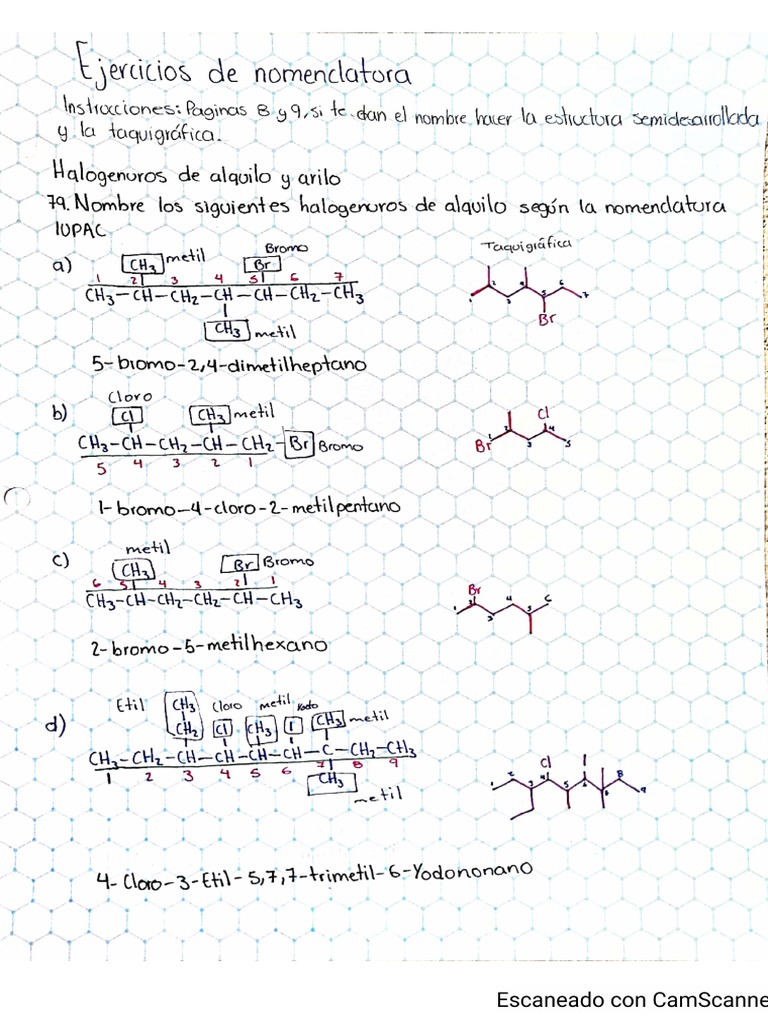 Ejercicios de nomenclatura
Instrucciones: Paginas 8 y 9, si te dan el nombre hacer la estructura semidesarrollada
y la taquigráfica.
Halogenuros de alquilo y arilo
79. Nombre los siguientes halogenuros de alquilo según la nomenclatura
IUPAC
Taquigráfica
a) CH3 metil Bromo Br
1 2 3 4 5 6 7
CH3-CH-CH2-CH-CH-CH2-CH3
CH3 metil
1 2 3 4 5 6 7
Br
5-bromo-2,4-dimetilheptano
cloro
b) Cl CH3 metil
CH3-CH-CH2-CH-CH2-Br Bromo
5 4 3 2 1
Cl
Br 1 2 3 4 5
1-bromo-4-cloro-2-metilpentano
metil
c) CH3 Br Bromo
6 5 4 3 2 1
CH3-CH-CH2-CH2-CH-CH3
Br
1 2 3 4 5 6
2-bromo-5-metilhexano
Etil CH3 cloro metil Yodo
d) CH2 Cl CH3 I CH3 metil
CH3-CH2-CH-CH-CH-CH-C-CH2-CH3
1 2 3 4 5 6 7 8 9
CH3
metil
Cl I
1 2 3 4 5 6 7 8 9
4-Cloro-3-Etil-5,7,7-trimetil-6-Yodononano
Escaneado con CamScanne